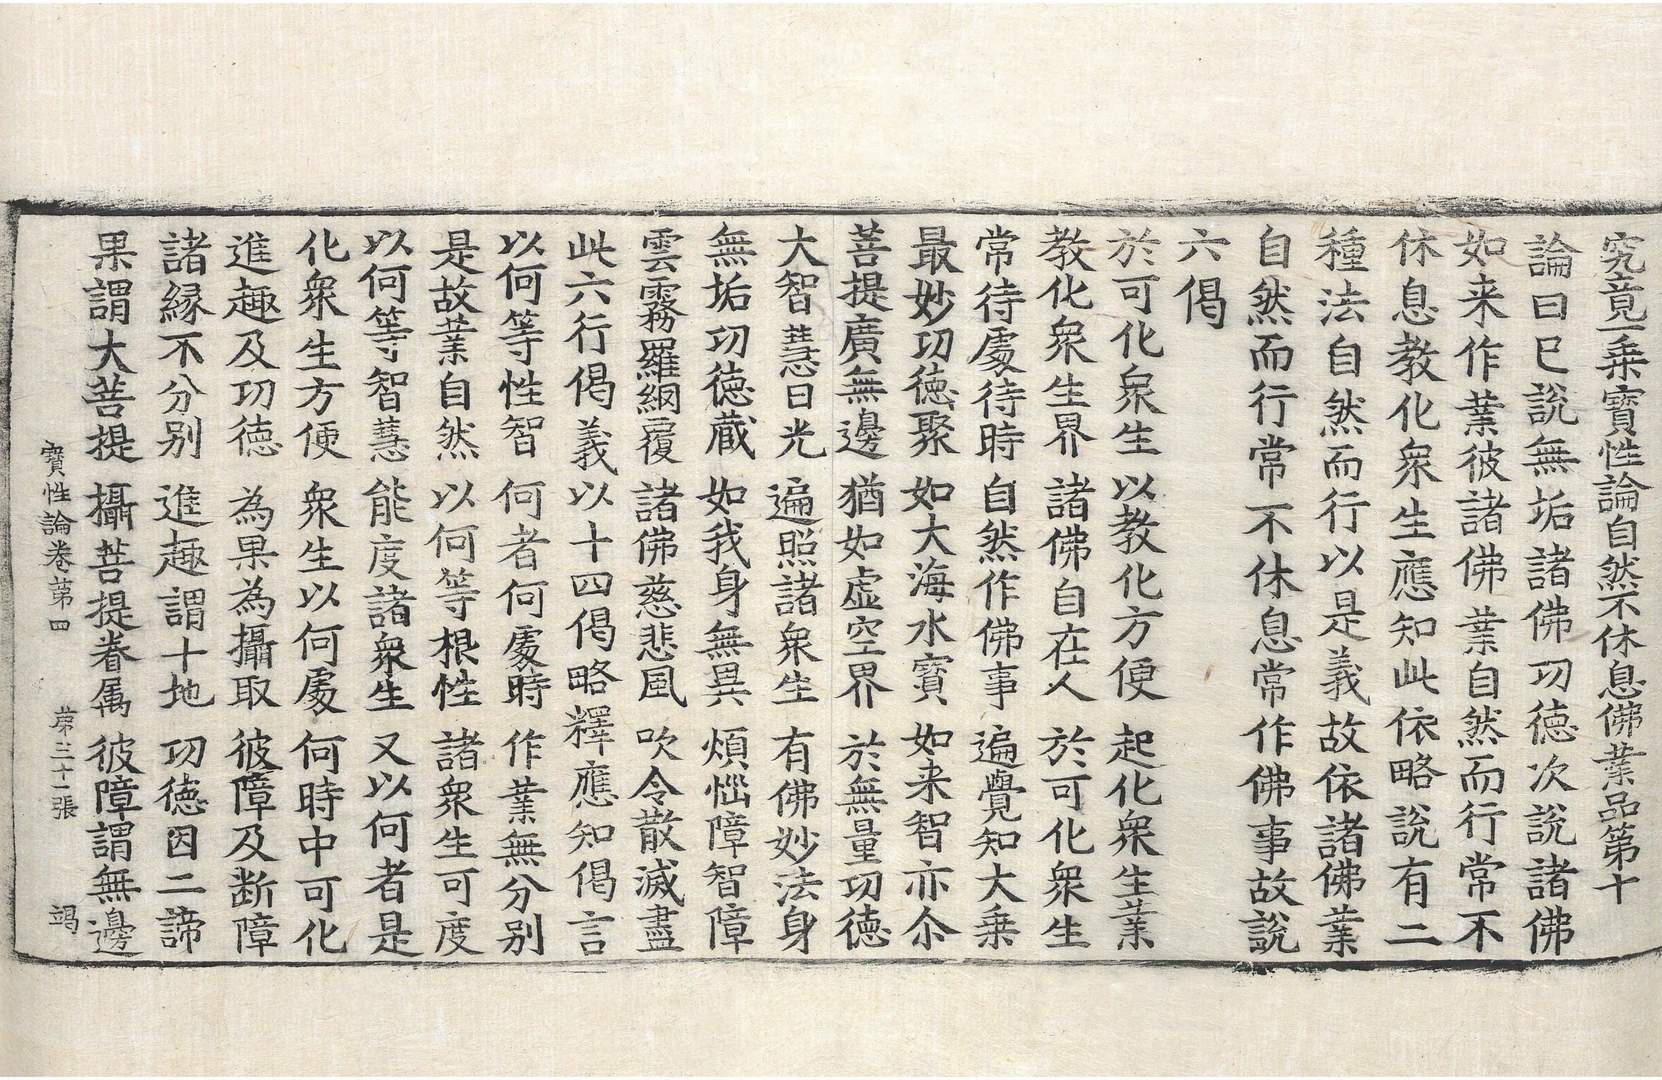 究竟一乗寶性論自然不休息佛業品第十
論曰已說無垢諸佛功德次說諸佛
如来作業彼諸佛業自然而行常不
休息教化衆生應知此依略說有二
種法自然而行以是義故依諸佛業
自然而行常不休息常作佛事故說
六偈
於可化衆生 以教化方便 起化衆生業
教化衆生界 諸佛自在人 於可化衆生
常待處待時 自然作佛事 遍覺知大乗
最妙功德聚 如大海水寶 如来智亦尒
菩提廣無邊 猶如虛空界 於無量功德
大智慧日光 遍照諸衆生 有佛妙法身
無垢功德藏 如我身無異 煩惱障智障
雲霧羅網覆 諸佛慈悲風 吹令散滅盡
此六行偈義以十四偈略釋應知偈言
以何等性智 何者何處時 作業無分別
是故業自然 以何等根性 諸衆生可度
以何等智慧 能度諸衆生 又以何者是
化衆生方便 衆生以何處 何時中可化
進趣及功德 為果為攝取 彼障及断障
諸縁不分別 進趣謂十地 功德因二諦
果謂大菩提 攝菩提眷属 彼障謂無邊
寶性論卷苐四 苐三十一張 竭